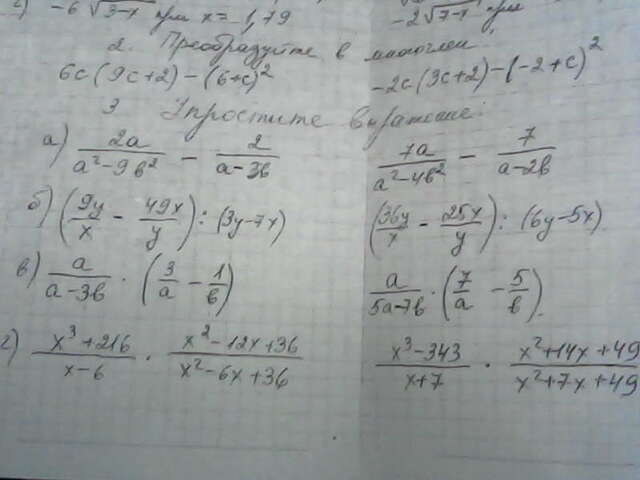 г) -6√(3-x) при x = -1,79
-2√(7-x) при
2. Преобразуйте в многочлен
6c(9c+2)-(6+c)²
-2c(3c+2)-(-2+c)²
3 Упростите выражение:
а) 2a/(a²-9b²) - 2/(a-3b)
7a/(a²-4b²) - 7/(a-2b)
б) (9y/x - 49x/y) : (3y-7x)
(36y/x - 25x/y) : (6y-5x)
в) a/(a-3b) · (3/a - 1/b)
a/(5a-7b) · (7/a - 5/b)
г) (x³+216)/(x-6) · (x²-12x+36)/(x²-6x+36)
(x³-343)/(x+7) · (x²+14x+49)/(x²+7x+49)